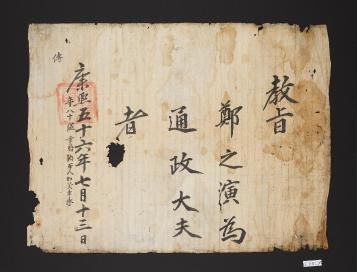 教旨
鄭之演為
通政大夫
者
康熙五十六年七月十三日
傳